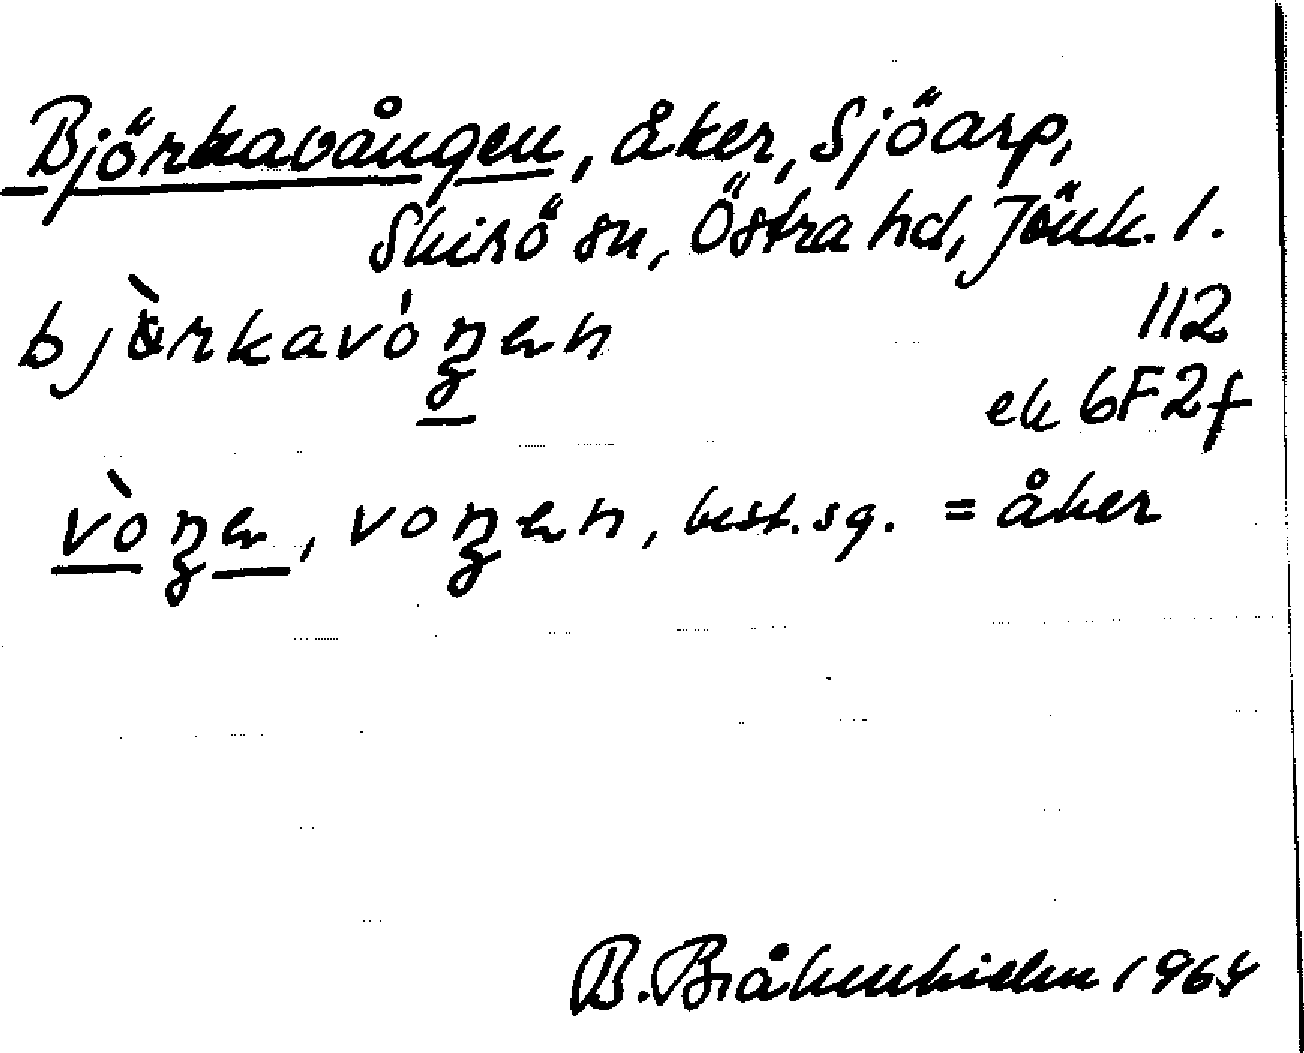 Björkavången, åker, Sjöarp,
Skirö sn, Östra hd, Jönk. l.
bjòrkavóŋen 112
ek 6F2f
vòŋe, voŋen, best. sg. = åker
B. Bråkenhielm 1964